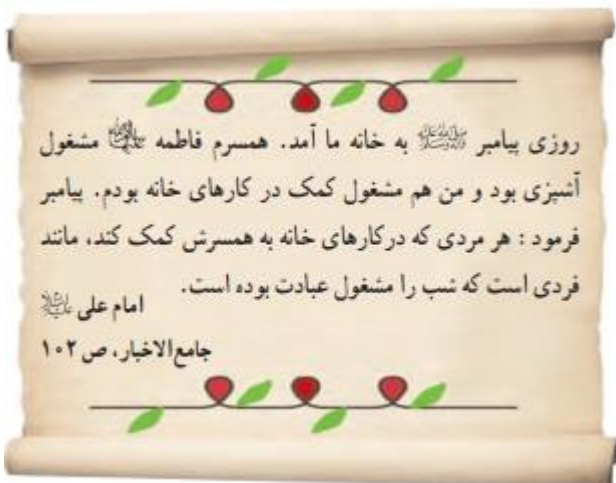 روزی پیامبر ﷺ به خانه ما آمد. همسرم فاطمه مشغول
آشپزی بود و من هم مشغول کمک در کارهای خانه بودم. پیامبر
فرمود : هر مردی که درکارهای خانه به همسرش کمک کند، مانند
فردی است که شب را مشغول عبادت بوده است.
امام علی
جامع‌الاخبار، ص ۱۰۲